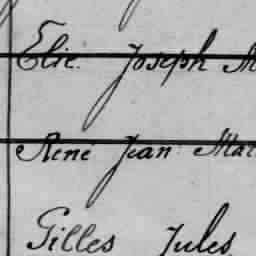 Elie Joseph M
René Jean Mar
Gilles Jules